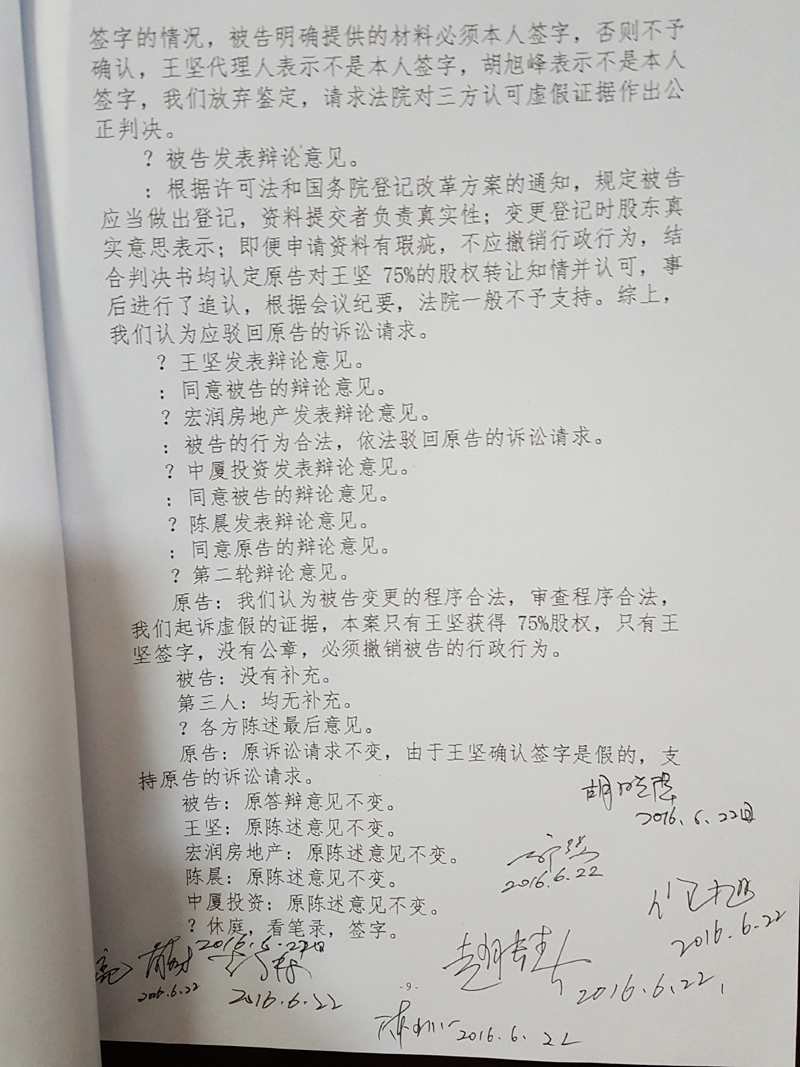 签字的情况，被告明确提供的材料必须本人签字，否则不予
确认，王坚代理人表示不是本人签字，胡旭峰表示不是本人
签字，我们放弃鉴定，请求法院对三方认可虚假证据作出公
正判决。
？被告发表辩论意见。
：根据许可法和国务院登记改革方案的通知，规定被告
应当做出登记，资料提交者负责真实性；变更登记时股东真
实意思表示；即便申请资料有瑕疵，不应撤销行政行为，结
合判决书均认定原告对王坚 75%的股权转让知情并认可，事
后进行了追认，根据会议纪要，法院一般不予支持。综上，
我们认为应驳回原告的诉讼请求。
？王坚发表辩论意见。
：同意被告的辩论意见。
？宏润房地产发表辩论意见。
：被告的行为合法，依法驳回原告的诉讼请求。
？中厦投资发表辩论意见。
：同意被告的辩论意见。
？陈晨发表辩论意见。
：同意原告的辩论意见。
？第二轮辩论意见。
原告：我们认为被告变更的程序合法，审查程序合法，
我们起诉虚假的证据，本案只有王坚获得 75%股权，只有王
坚签字，没有公章，必须撤销被告的行政行为。
被告：没有补充。
第三人：均无补充。
？各方陈述最后意见。
原告：原诉讼请求不变，由于王坚确认签字是假的，支
持原告的诉讼请求。
被告：原答辩意见不变。
王坚：原陈述意见不变。
宏润房地产：原陈述意见不变。
陈晨：原陈述意见不变。
中厦投资：原陈述意见不变。
？休庭，看笔录，签字。
2016.6.22日
2016.6.22
2016.6.22
2016.6.22日
2016.6.22
2016.6.22
2016.6.22
-9-
2016.6.22